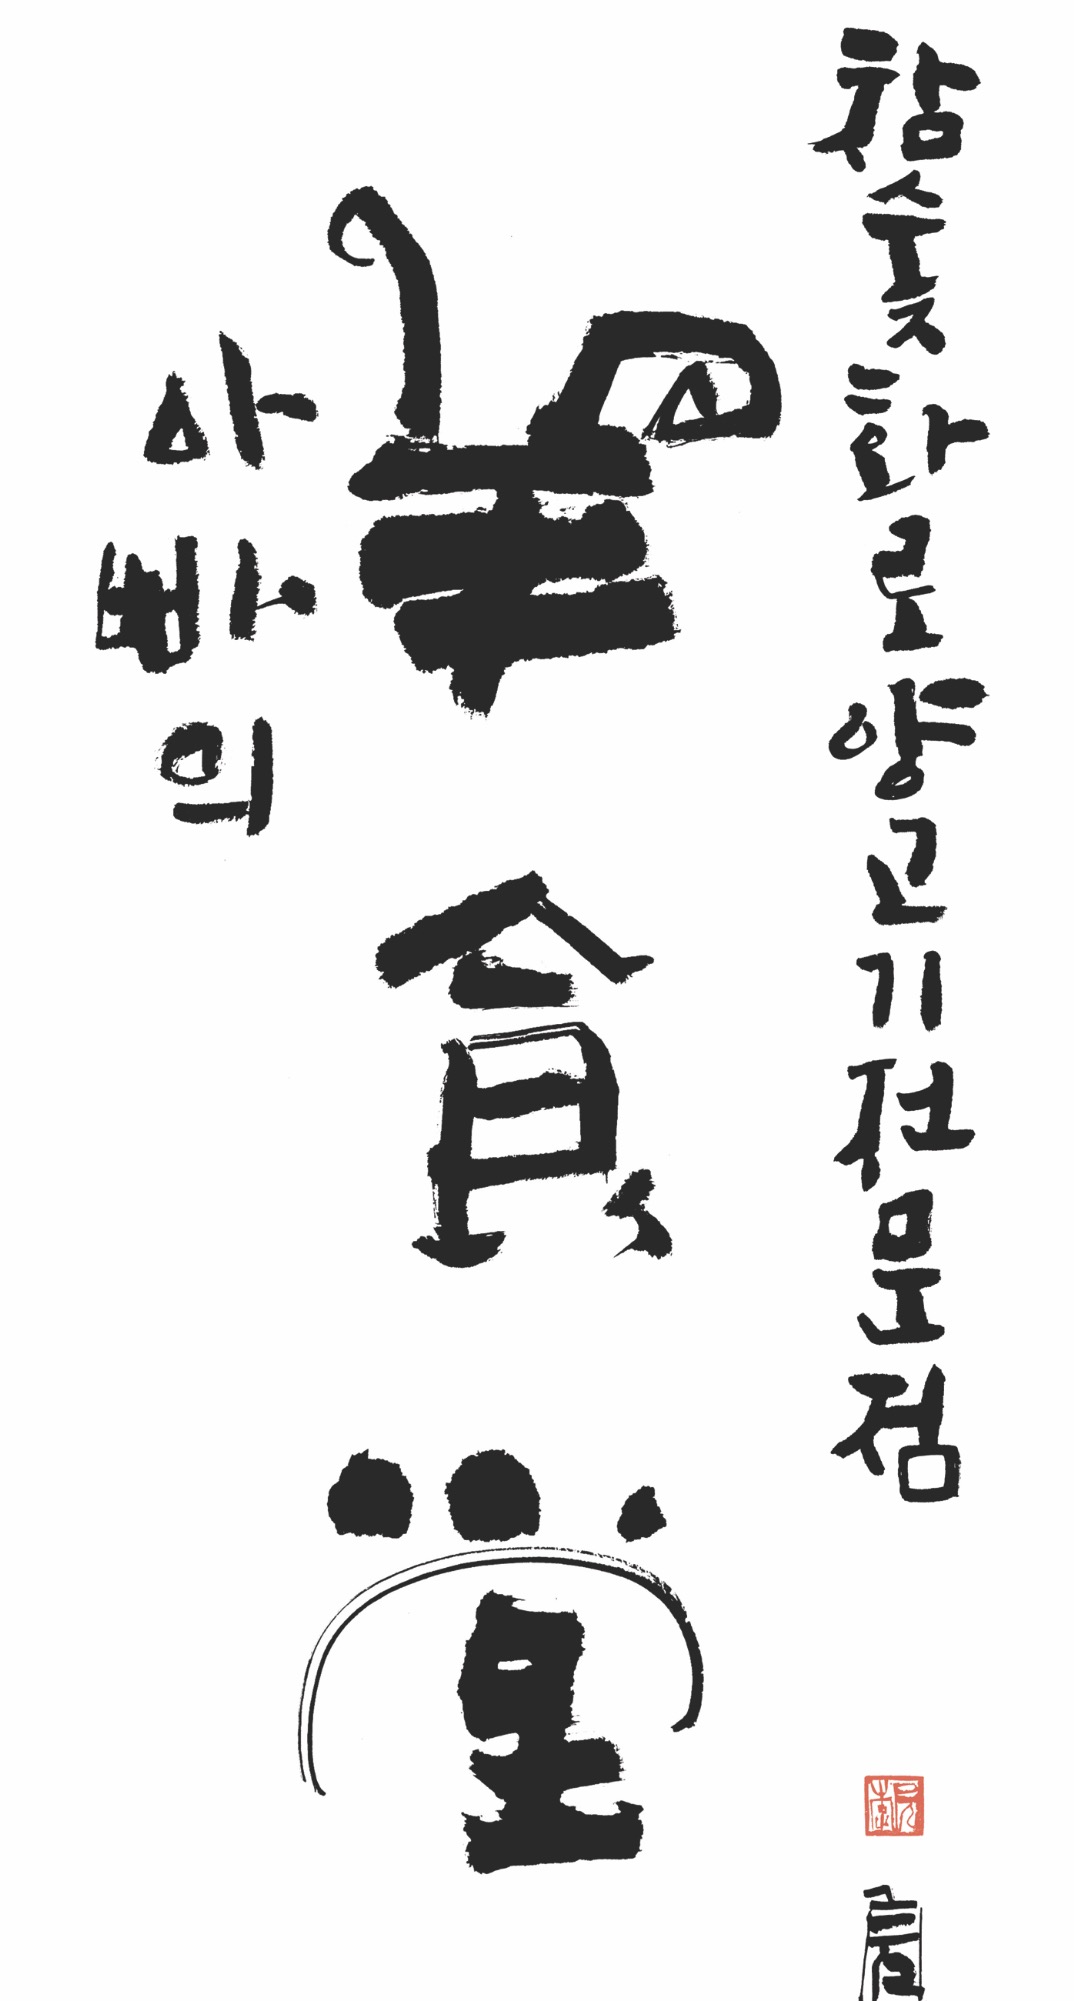 아빠의
羊食堂
참숯화로양고기전문점